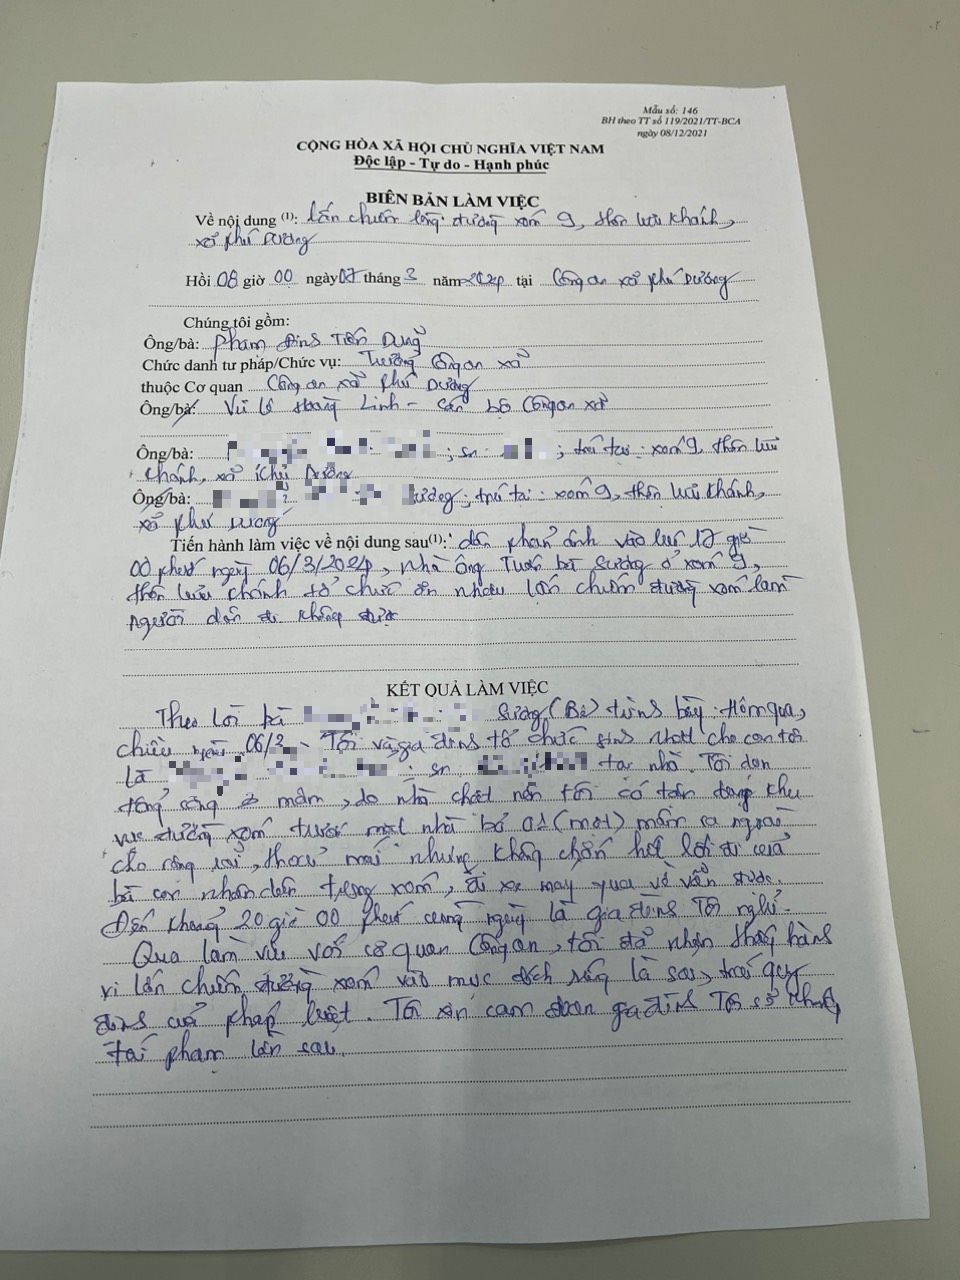 Mẫu số: 146
BH theo TT số 119/2021/TT-BCA
ngày 08/12/2021
CỘNG HÒA XÃ HỘI CHỦ NGHĨA VIỆT NAM
Độc lập - Tự do - Hạnh phúc
BIÊN BẢN LÀM VIỆC
Về nội dung (1): lấn chiếm lòng đường xóm 9, thôn lưu Khánh,
xã Phú Dương
Hồi 08 giờ 00 ngày 07 tháng 3 năm 2024 tại Công an xã Phú Dương
Chúng tôi gồm:
Ông/bà: Phạm Đình Tiến Dung
Chức danh tư pháp/Chức vụ: Trưởng Công an xã
thuộc Cơ quan Công an xã Phú Dương
Ông/bà: Vũ Lê Hoàng Linh - Cán bộ Công an xã
Ông/bà: ; sn ; trú tại: xóm 9, thôn lưu
Khánh, xã Phú Dương
Ông/bà: Sương; trú tại: xóm 9, thôn lưu Khánh,
xã Phú Dương
Tiến hành làm việc về nội dung sau(1): dân phản ánh vào lúc 17 giờ
00 phút ngày 06/3/2024, nhà ông Tuấn bà Sương ở xóm 9,
thôn lưu Khánh tổ chức ăn nhậu lấn chiếm đường xóm làm
người dân đi không được
KẾT QUẢ LÀM VIỆC
Theo lời bà Sương (Bê) trình bày: Hôm qua,
chiều ngày 06/3 - Tôi và gia đình tổ chức sinh nhật cho con tôi
là ; sn tại nhà. Tôi dọn
tổng cộng 3 mâm, do nhà chật nên tôi có tận dụng khu
vực đường xóm trước mặt nhà bỏ 01 (một) mâm ra ngoài
cho rộng rãi, thoải mái nhưng không chắn hết lối đi của
bà con nhân dân trong xóm, đi xe máy qua về vẫn được.
Đến khoảng 20 giờ 00 phút cùng ngày là gia đình Tôi nghỉ.
Qua làm việc với cơ quan Công an, tôi đã nhận thấy hành
vi lấn chiếm đường xóm vào mục đích riêng là sai, trái quy
định của pháp luật. Tôi xin cam đoan gia đình Tôi sẽ không
tái phạm lần sau.